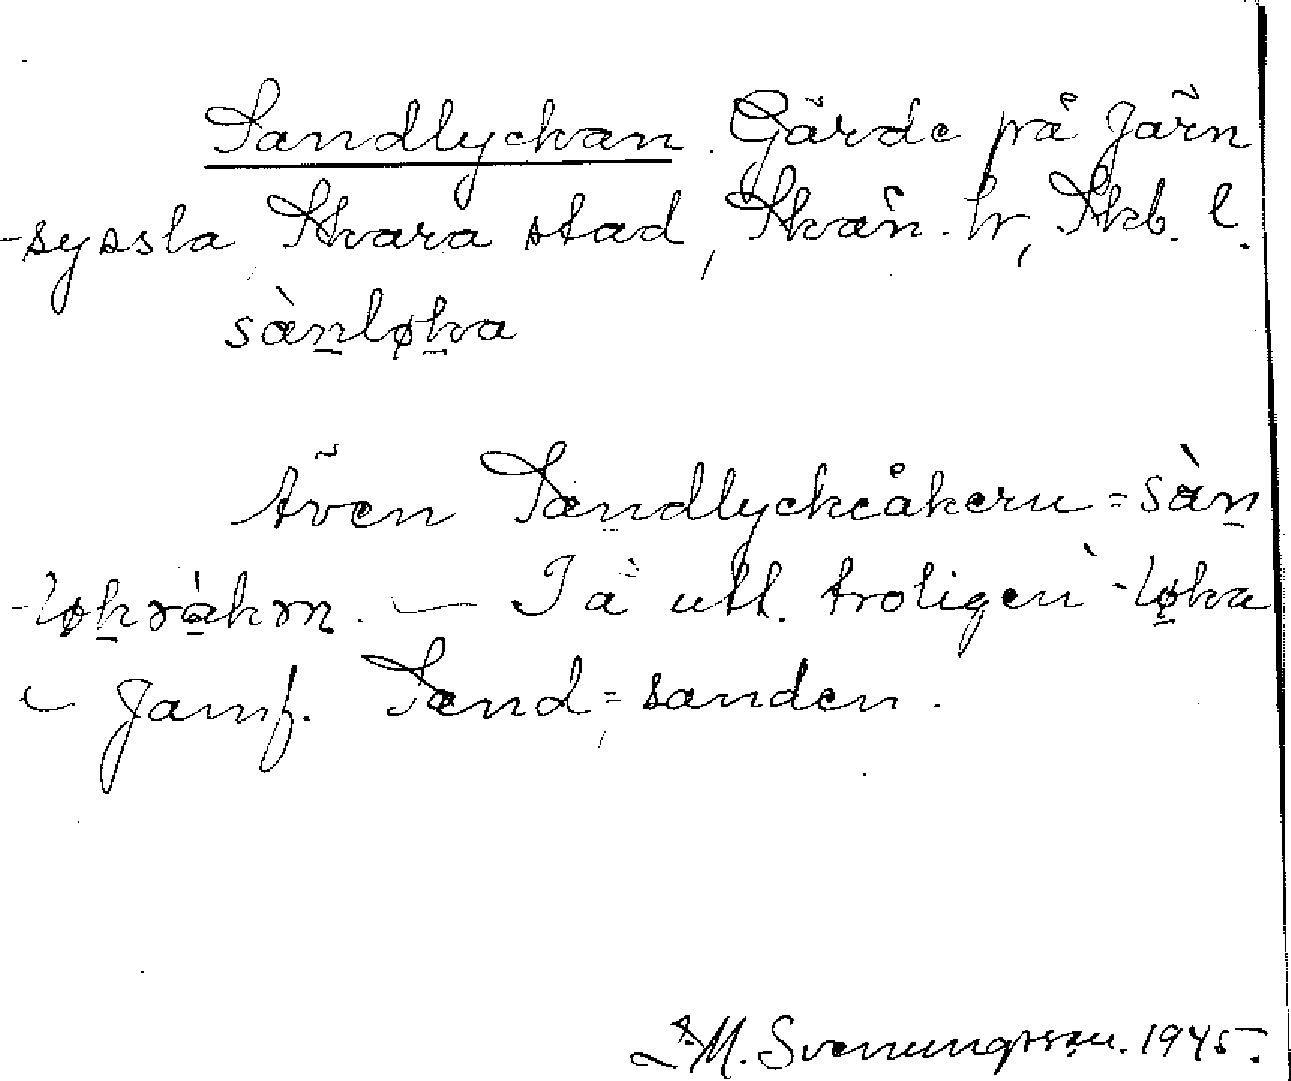 Sandlyckan. Gärde på Järn
-syssla, Skara stad, Skån. hr, Skb. l.
sàn̲løk̲a
Även Sandlyckeåkern = sàn̲
-løk̲ɘàkɘn. — I ä utt. troligen -løka
– Jämf. Sand = sanden.
M. Svenungsson. 1945.